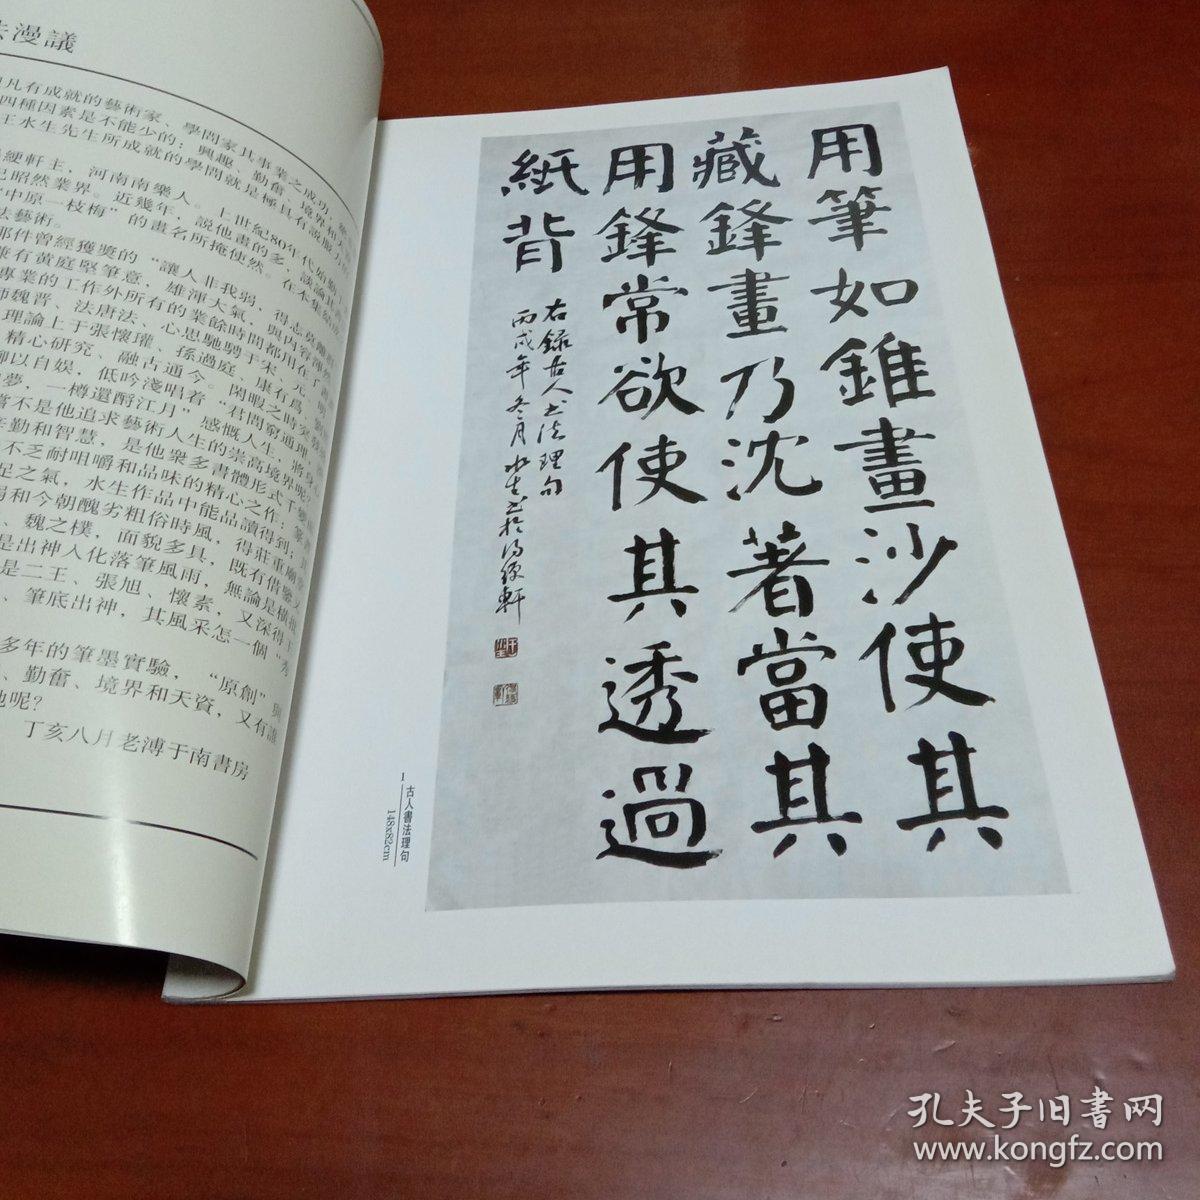 法漫議
凡有成就的藝術家、學問家其事業之成功，
四種因素是不能少的：興趣、勤奮、境界和天
王水生先生所成就的學問就是極具有說服力
綆軒主，河南南樂人。上世紀80年代始
已昭然業界。近幾年，說他畫的多，
“中原一枝梅”的畫名所掩使然。在本集
法藝術。
那件曾經獲獎的“讓人非我弱，得志
兼有黃庭堅筆意，雄渾大氣，與內容
專業的工作外所有的業餘時間都用在了
師魏晋、法唐法、心思馳騁于宋、元、明
理論上于張懷瓘、孫過庭、康有爲、
精心研究、融古通今。閑暇之時
聊以自娱，低吟淺唱着“君問窮通理
夢，一樽還酹江月”感慨人生，將身心
嘗不是他追求藝術人生的崇高境界呢
辛勤和智慧，是他衆多書體形式千變
不乏耐咀嚼和品味的精心之作；篆書
足之氣，水生作品中能品讀得到；
弱和今朝醜劣粗俗時風，得莊重廟堂
、魏之樸，面貌多具，既有借鑒又
是出神入化落筆風雨，無論是橫推
是二王、張旭、懷素，又深得王
、筆底出神，其風采怎一個“秀
多年的筆墨實驗，“原創”與
、勤奮、境界和天資，又有誰
他呢？
丁亥八月老溥于南書房
用筆如錐畫沙使其
藏鋒畫乃沈著當其
用鋒常欲使其透過
紙背
右録古人書法理句
丙戌年冬月水生書於得綆軒
1 古人書法理句
148x82cm
孔夫子旧書网
www.kongfz.com